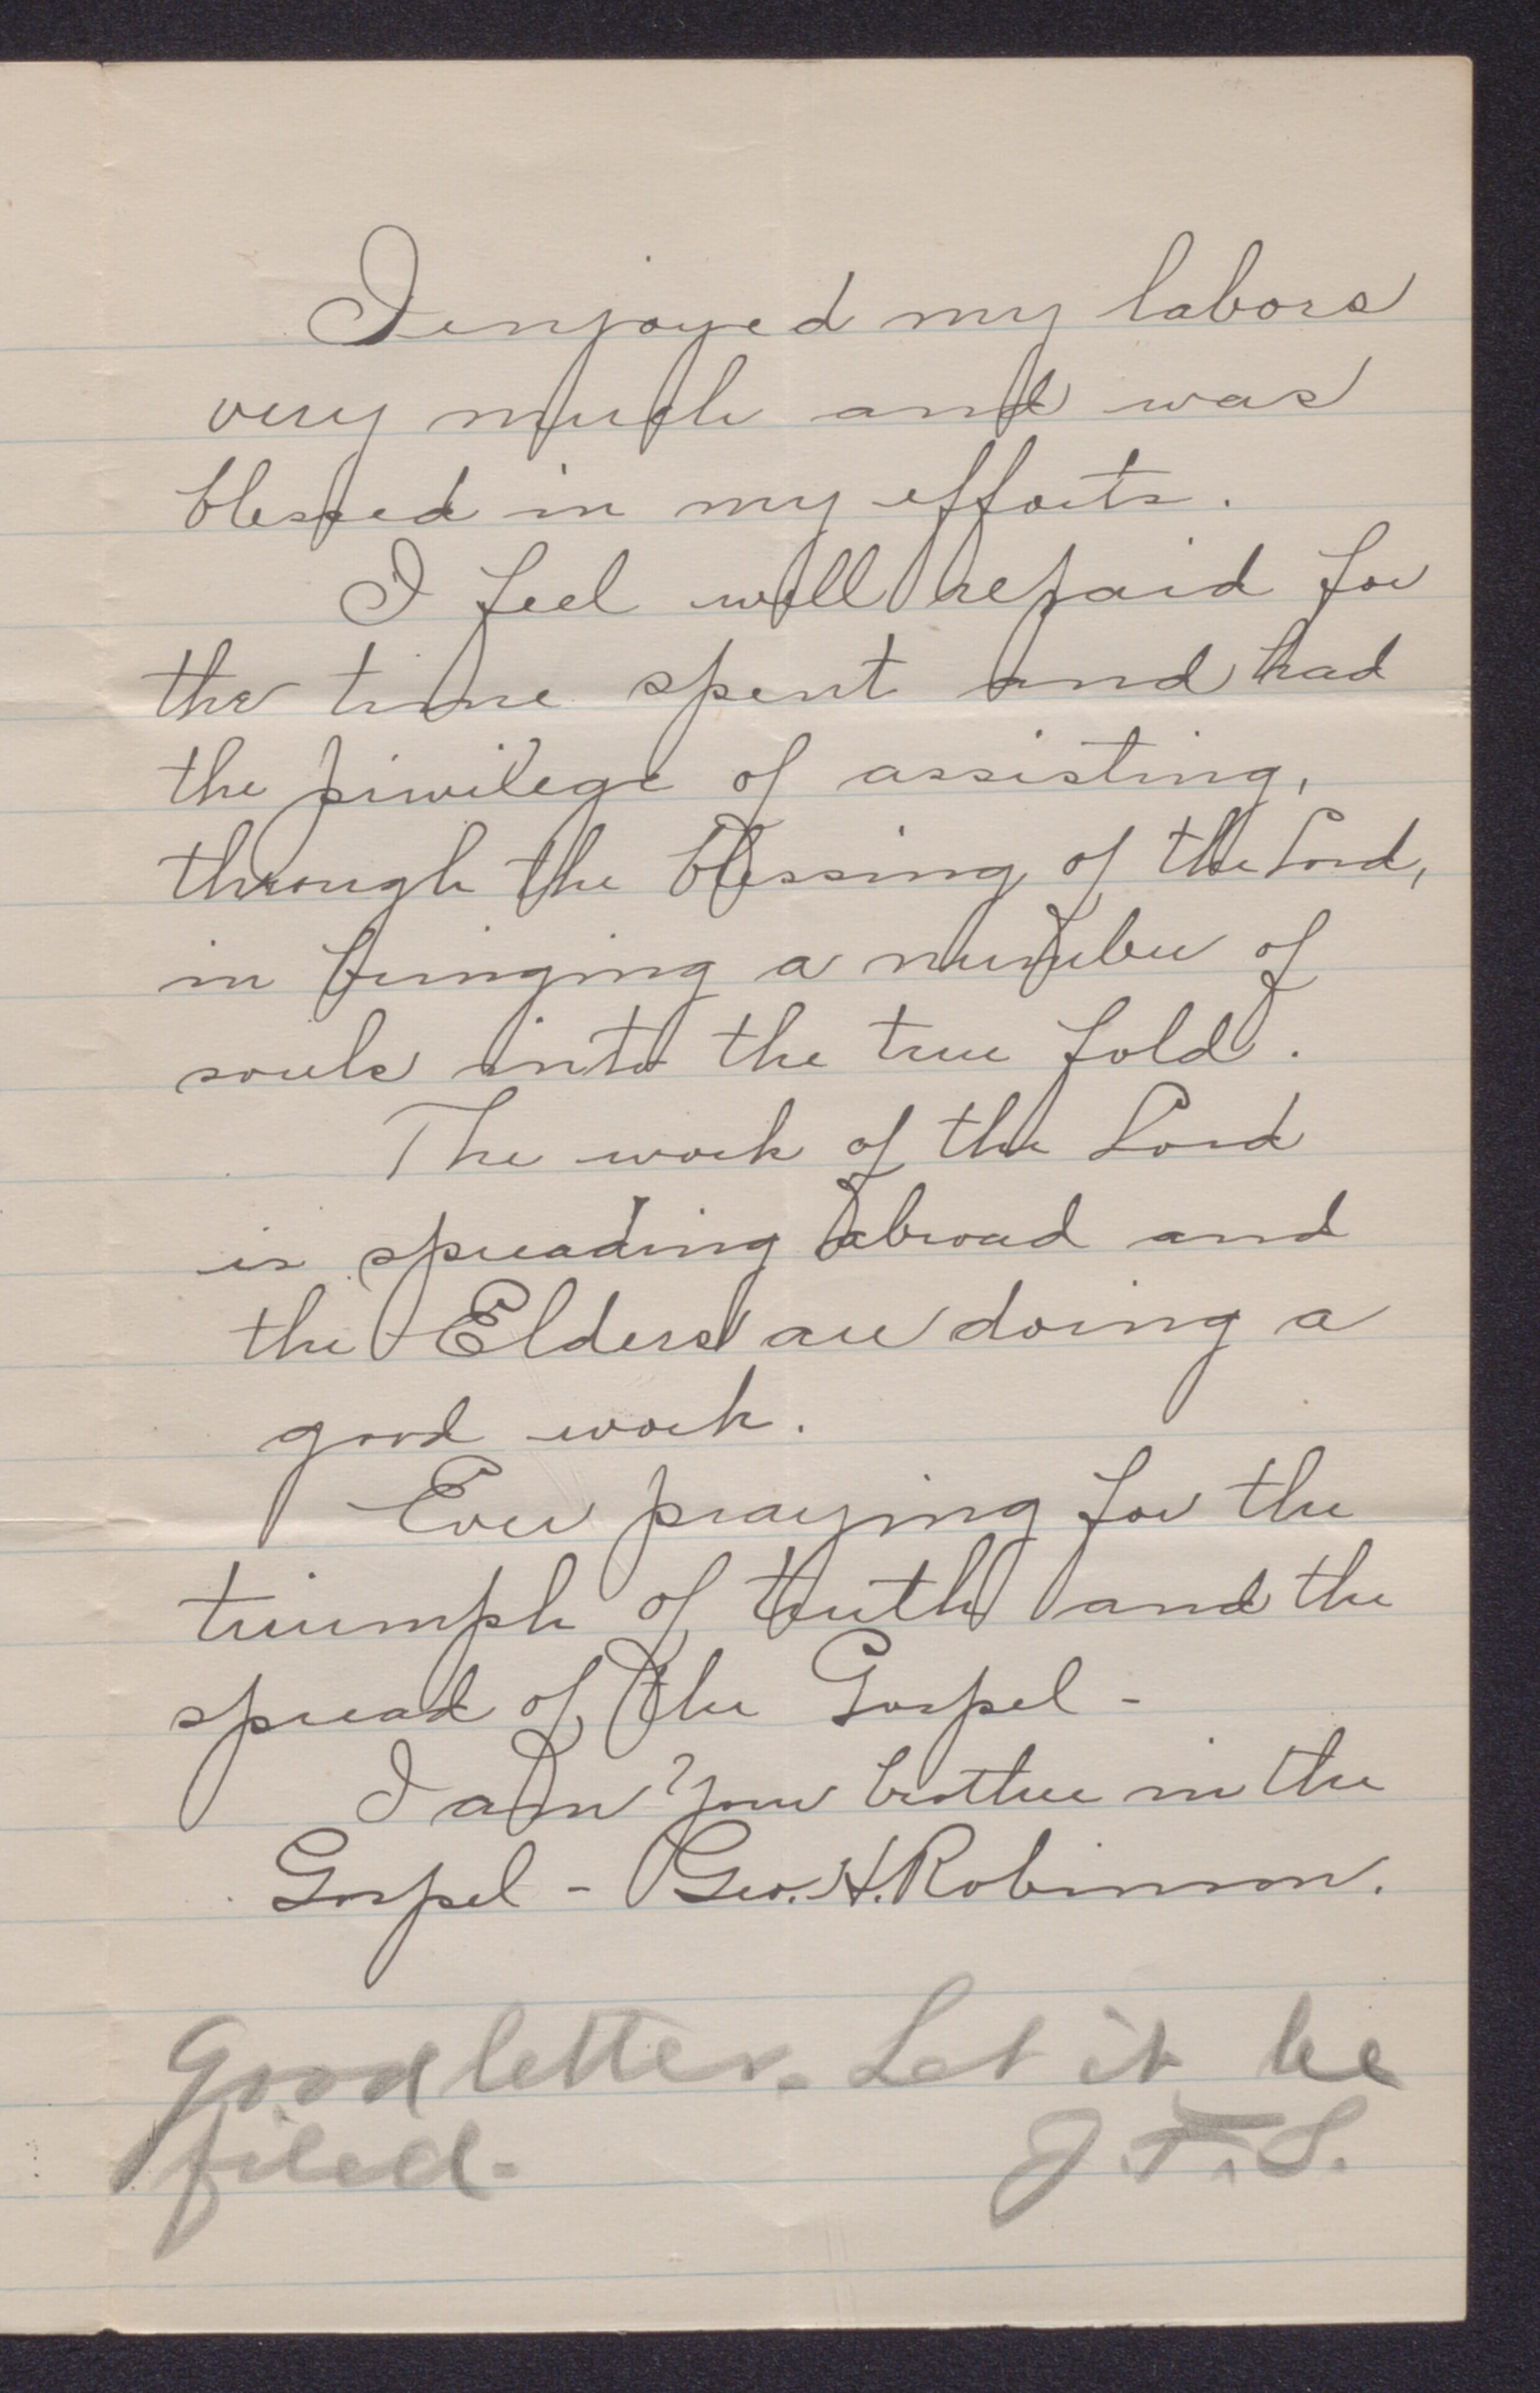 I enjoyed my labors
very much and was
blessed in my efforts.
I feel well repaid for
the time spent and had
the privilege of assisting,
through the blessing of the Lord,
in bringing a number of
souls into the true fold.
The work of the Lord
is spreading abroad and
the Elders are doing a
good work.
Ever praying for the
triumph of truth and the
spread of the Gospel -
I am Your brother in the
Gospel - Geo. H. Robinson.
Good letter. Let it be
filed. J. F. S.